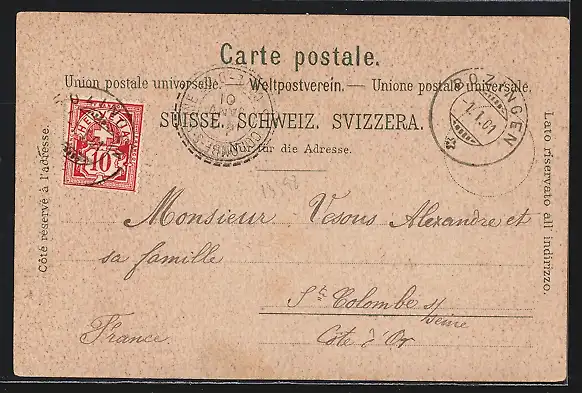 Carte postale.
Union postale universelle. — Weltpostverein. — Unione postale universale.
SUISSE. SCHWEIZ. SVIZZERA.
Nur für die Adresse.
Côté réservé à l'adresse.
Lato riservato all' indirizzo.
HELVETIA
10
BOZINGEN
1.1.01
01
Monsieur Vesous Alexandre et
sa famille
Ste Colombe s/
Seine
France
Côte d'Or